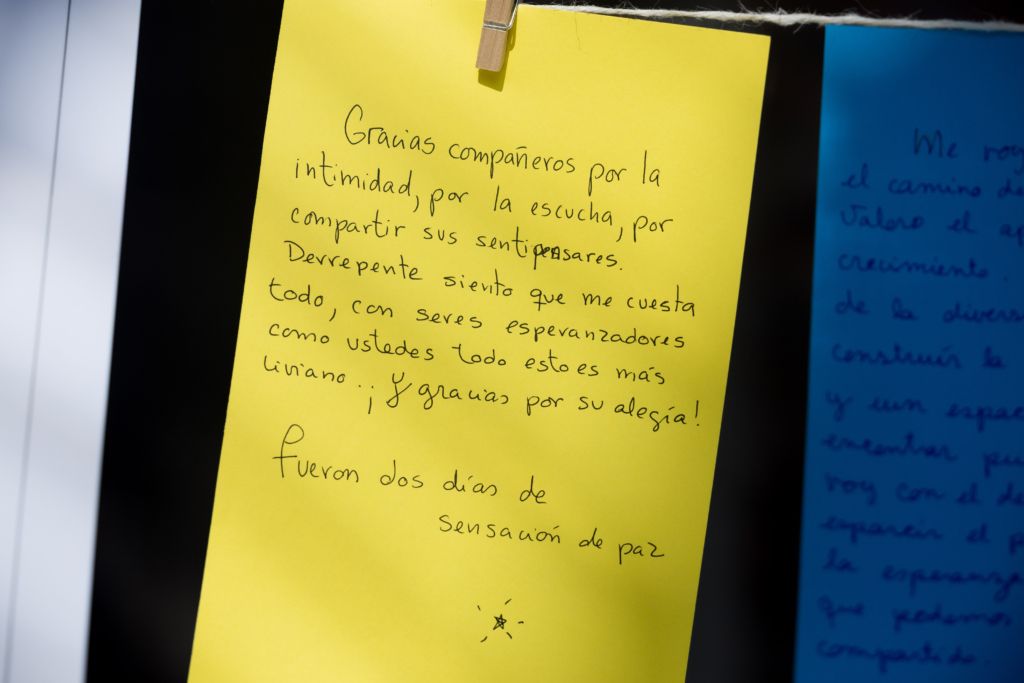 Gracias compañeros por la
intimidad, por la escucha, por
compartir sus sentipensares.
Derrepente siento que me cuesta
todo, con seres esperanzadores
como ustedes todo esto es más
liviano. ¡Y gracias por su alegía!
Fueron dos días de
sensación de paz
Me voy
el camino de
Valoro el
crecimiento.
de la
construir la
y un
encontrar
voy con el
esparcir el
la esperanza
que podamos
compartido.